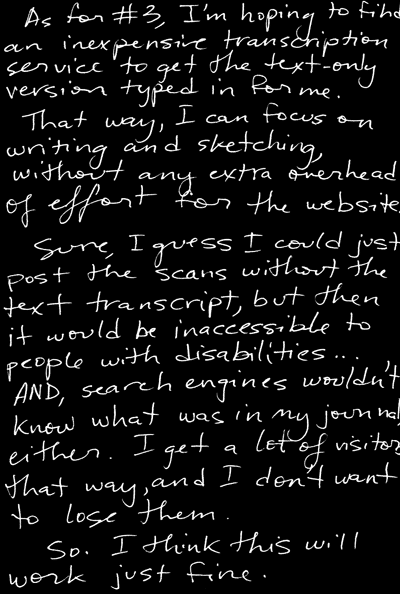 As for #3, I'm hoping to find
an inexpensive transcription
service to get the text-only
version typed in for me.
That way, I can focus on
writing and sketching,
without any extra overhead
of effort for the website.
Sure, I guess I could just
post the scans without the
text transcript, but then
it would be inaccessible to
people with disabilities...
AND, search engines wouldn't
know what was in my journal
either. I get a lot of visitors
that way, and I don't want
to lose them.
So. I think this will
work just fine.